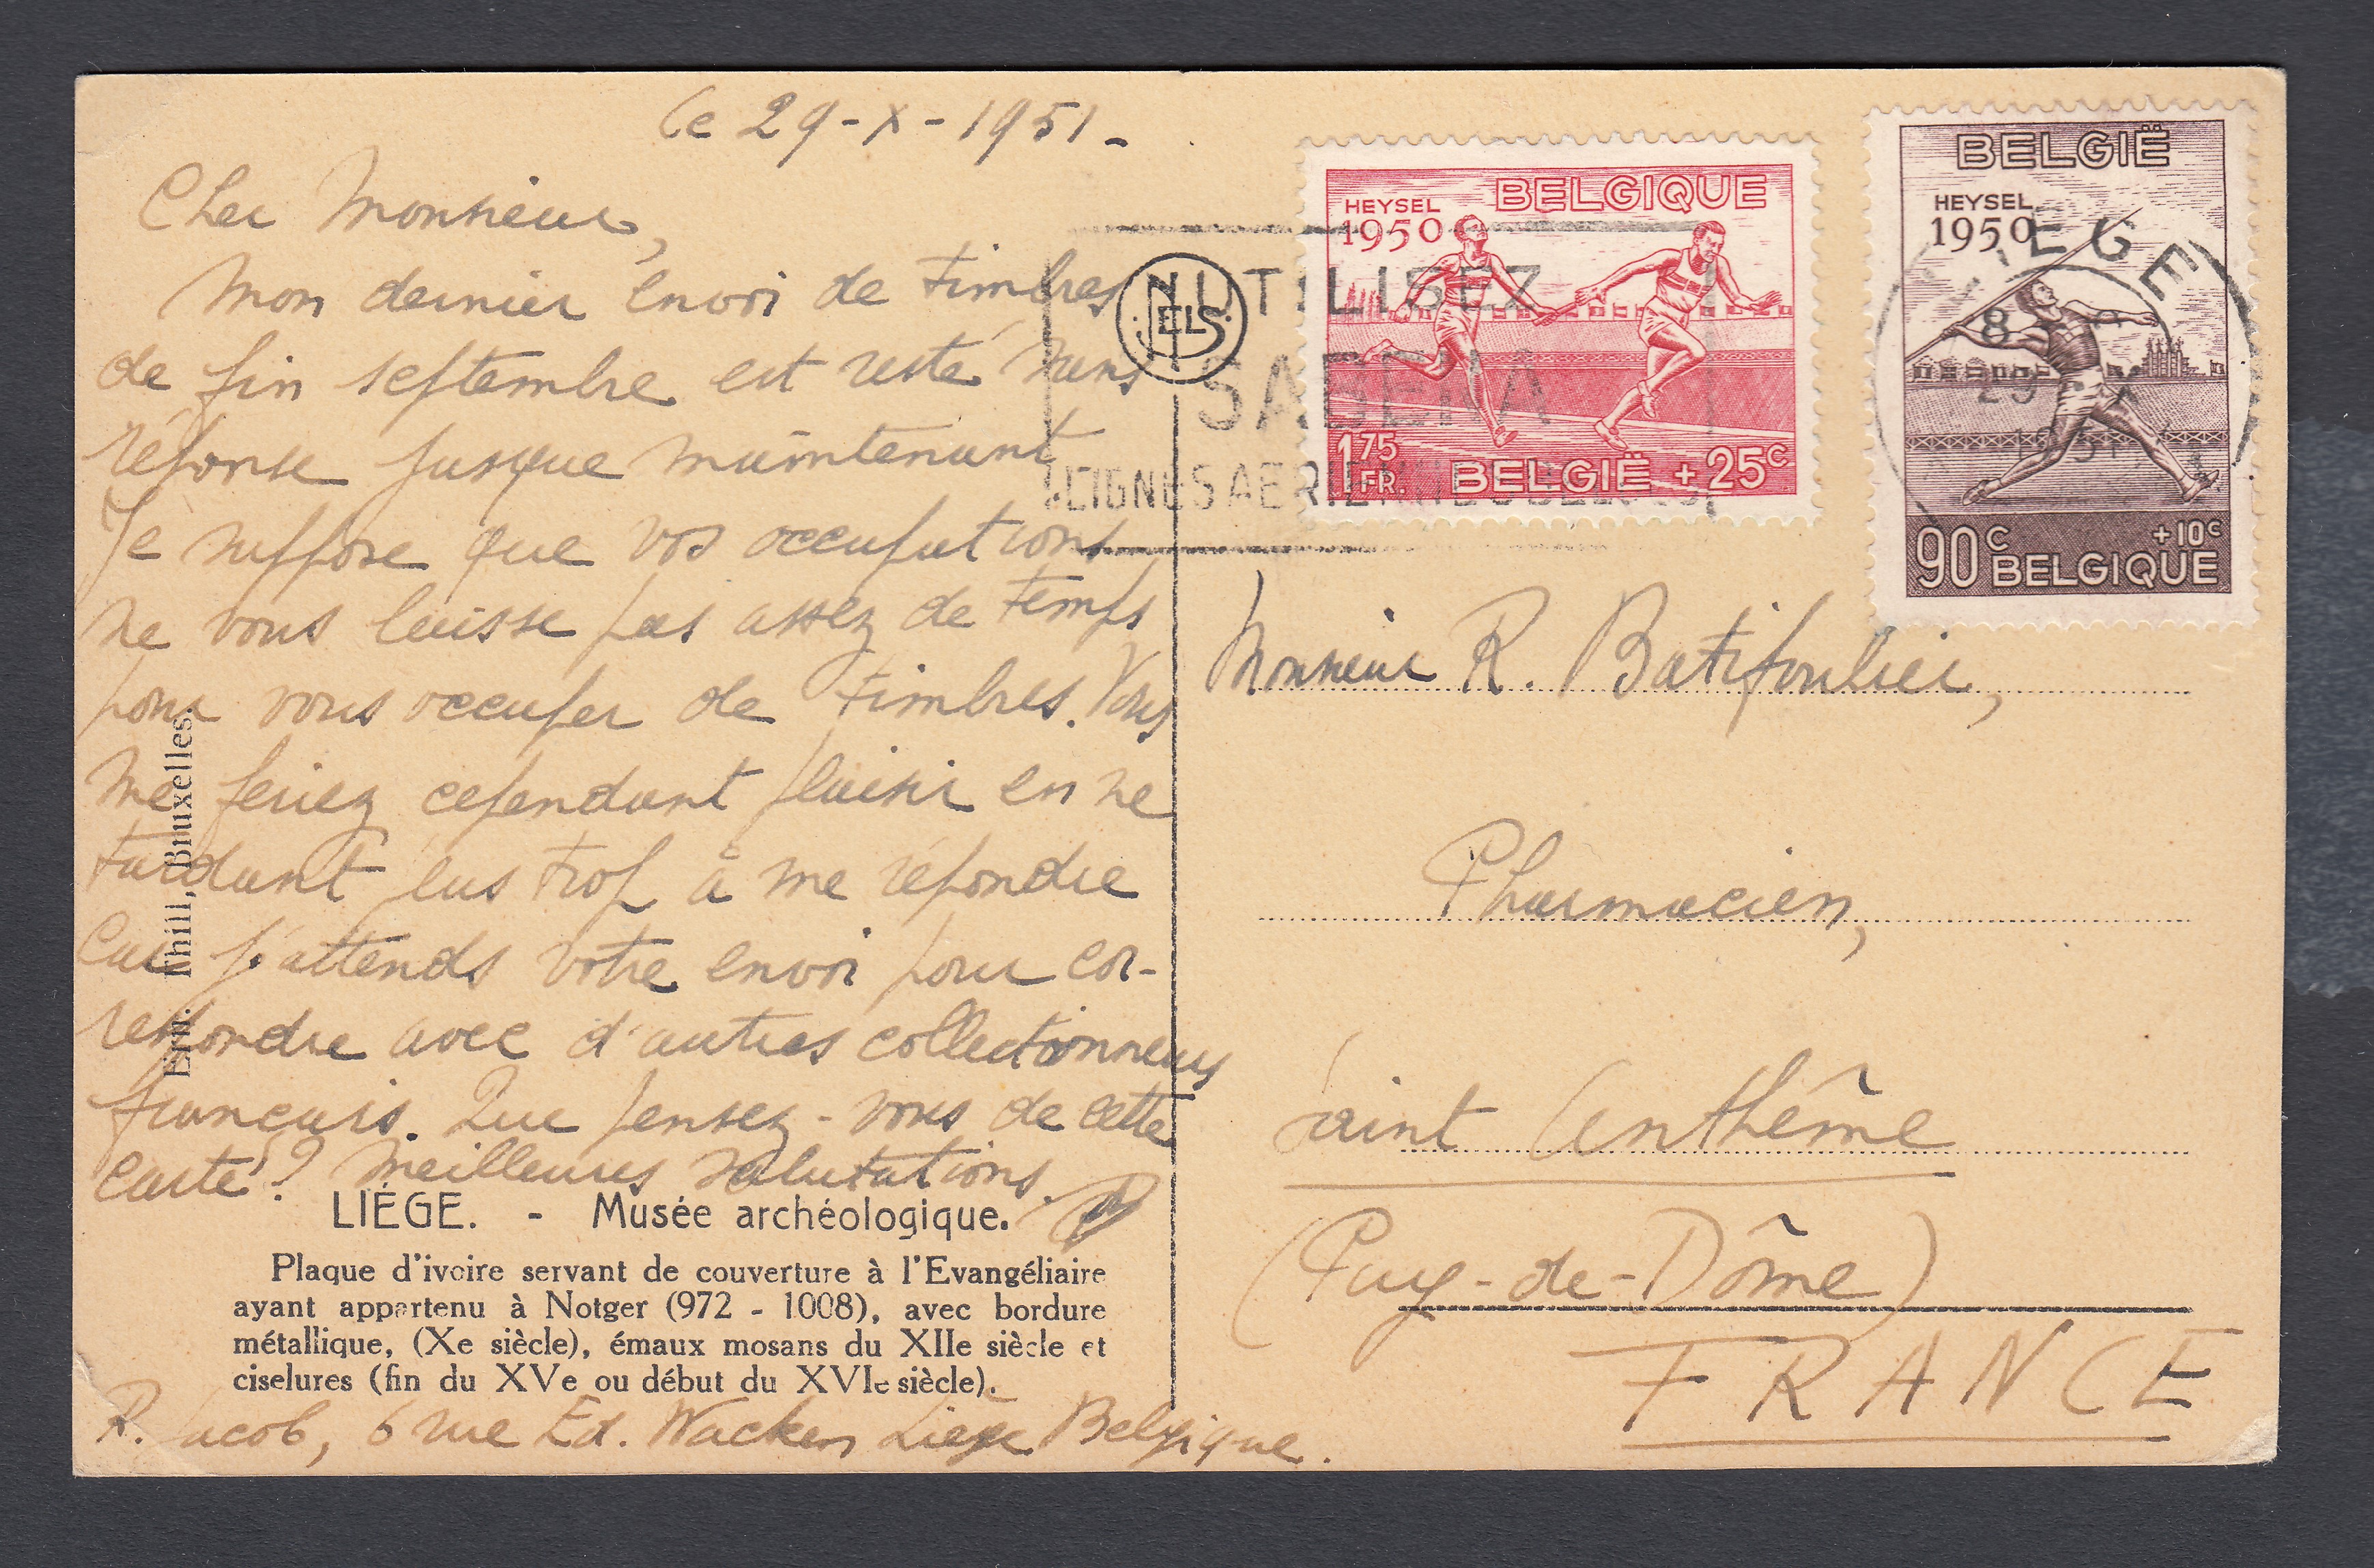 Le 29-X-1951.
Cher Monsieur,
Mon dernier envoi de timbres
de fin septembre est resté sans
réponse jusque maintenant
Je suppose que vos occupations
ne vous laisse pas assez de temps
pour vous occuper de timbres. Vous
me feriez cependant plaisir en ne
tardant plus trop à me répondre
car j'attends votre envoi pour cor-
respondre avec d'autres collectionneurs
français. Que pensez-vous de cette
carte? Meilleures salutations.
LIÉGE. - Musée archéologique.
Plaque d'ivoire servant de couverture à l'Evangéliaire
ayant appartenu à Notger (972 - 1008), avec bordure
métallique, (Xe siècle), émaux mosans du XIIe siècle et
ciselures (fin du XVe ou début du XVIe siècle).
R. Jacob, 6 rue Ed. Wacken Liège Belgique.
Ern. Thill, Bruxelles.
NELS
UTILISEZ
SABENA
LIGNES AERIENNES BELGES
BELGIQUE
HEYSEL
1950
1 75 FR. BELGIË + 25c
BELGIË
HEYSEL
1950
90c +10c
BELGIQUE
LIEGE
29 X
1951
Monsieur R. Batifoulier,
Pharmacien,
Saint Anthême
(Puy-de-Dôme)
FRANCE